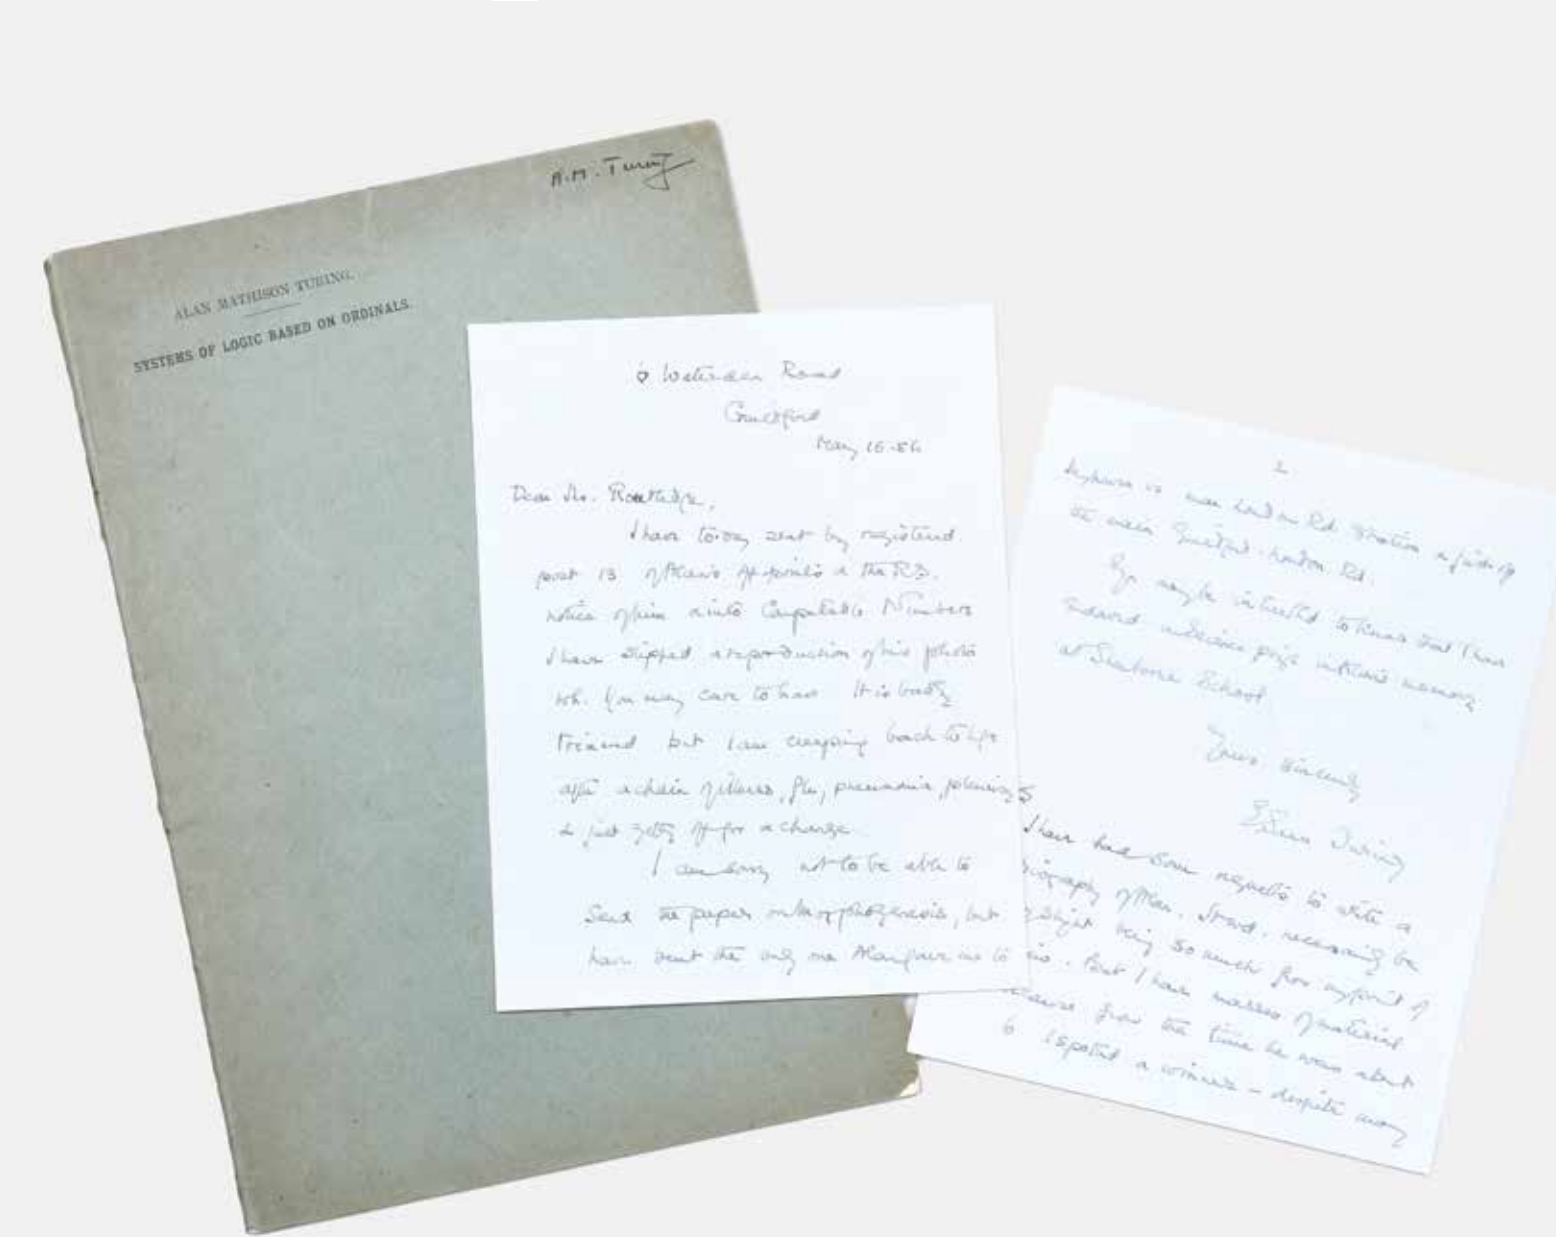 A.M. Turing
ALAN MATHISON TURING.
SYSTEMS OF LOGIC BASED ON ORDINALS.
Road
Guildford
May 16. 56
Dear Mr. Routledge,
I have to-day sent by registered
post 13 of Alan's off-prints & the R.S.
notice of him & into Computable Numbers
I have slipped a reproduction of his photo
wh. you may care to have It is badly
trimmed but I am creeping back to life
after a chain of illness, flu, pneumonia, pleurisy
& just getting off for a change.
I am sorry not to be able to
send the paper on Morphogenesis, but
have sent the only one Alan gave me to
2
is near London Rd. Station
the main Guildford-London Rd.
You may be interested to know that I have
endowed a Science prize in Alan's memory
at Sherborne School
Yours sincerely
E. Sara Turing
I have had some requests to write a
biography of Alan. It wd. necessarily be
being so much from my point of
. But I have masses of material
from the time he was about
6 I spotted a winner - despite many